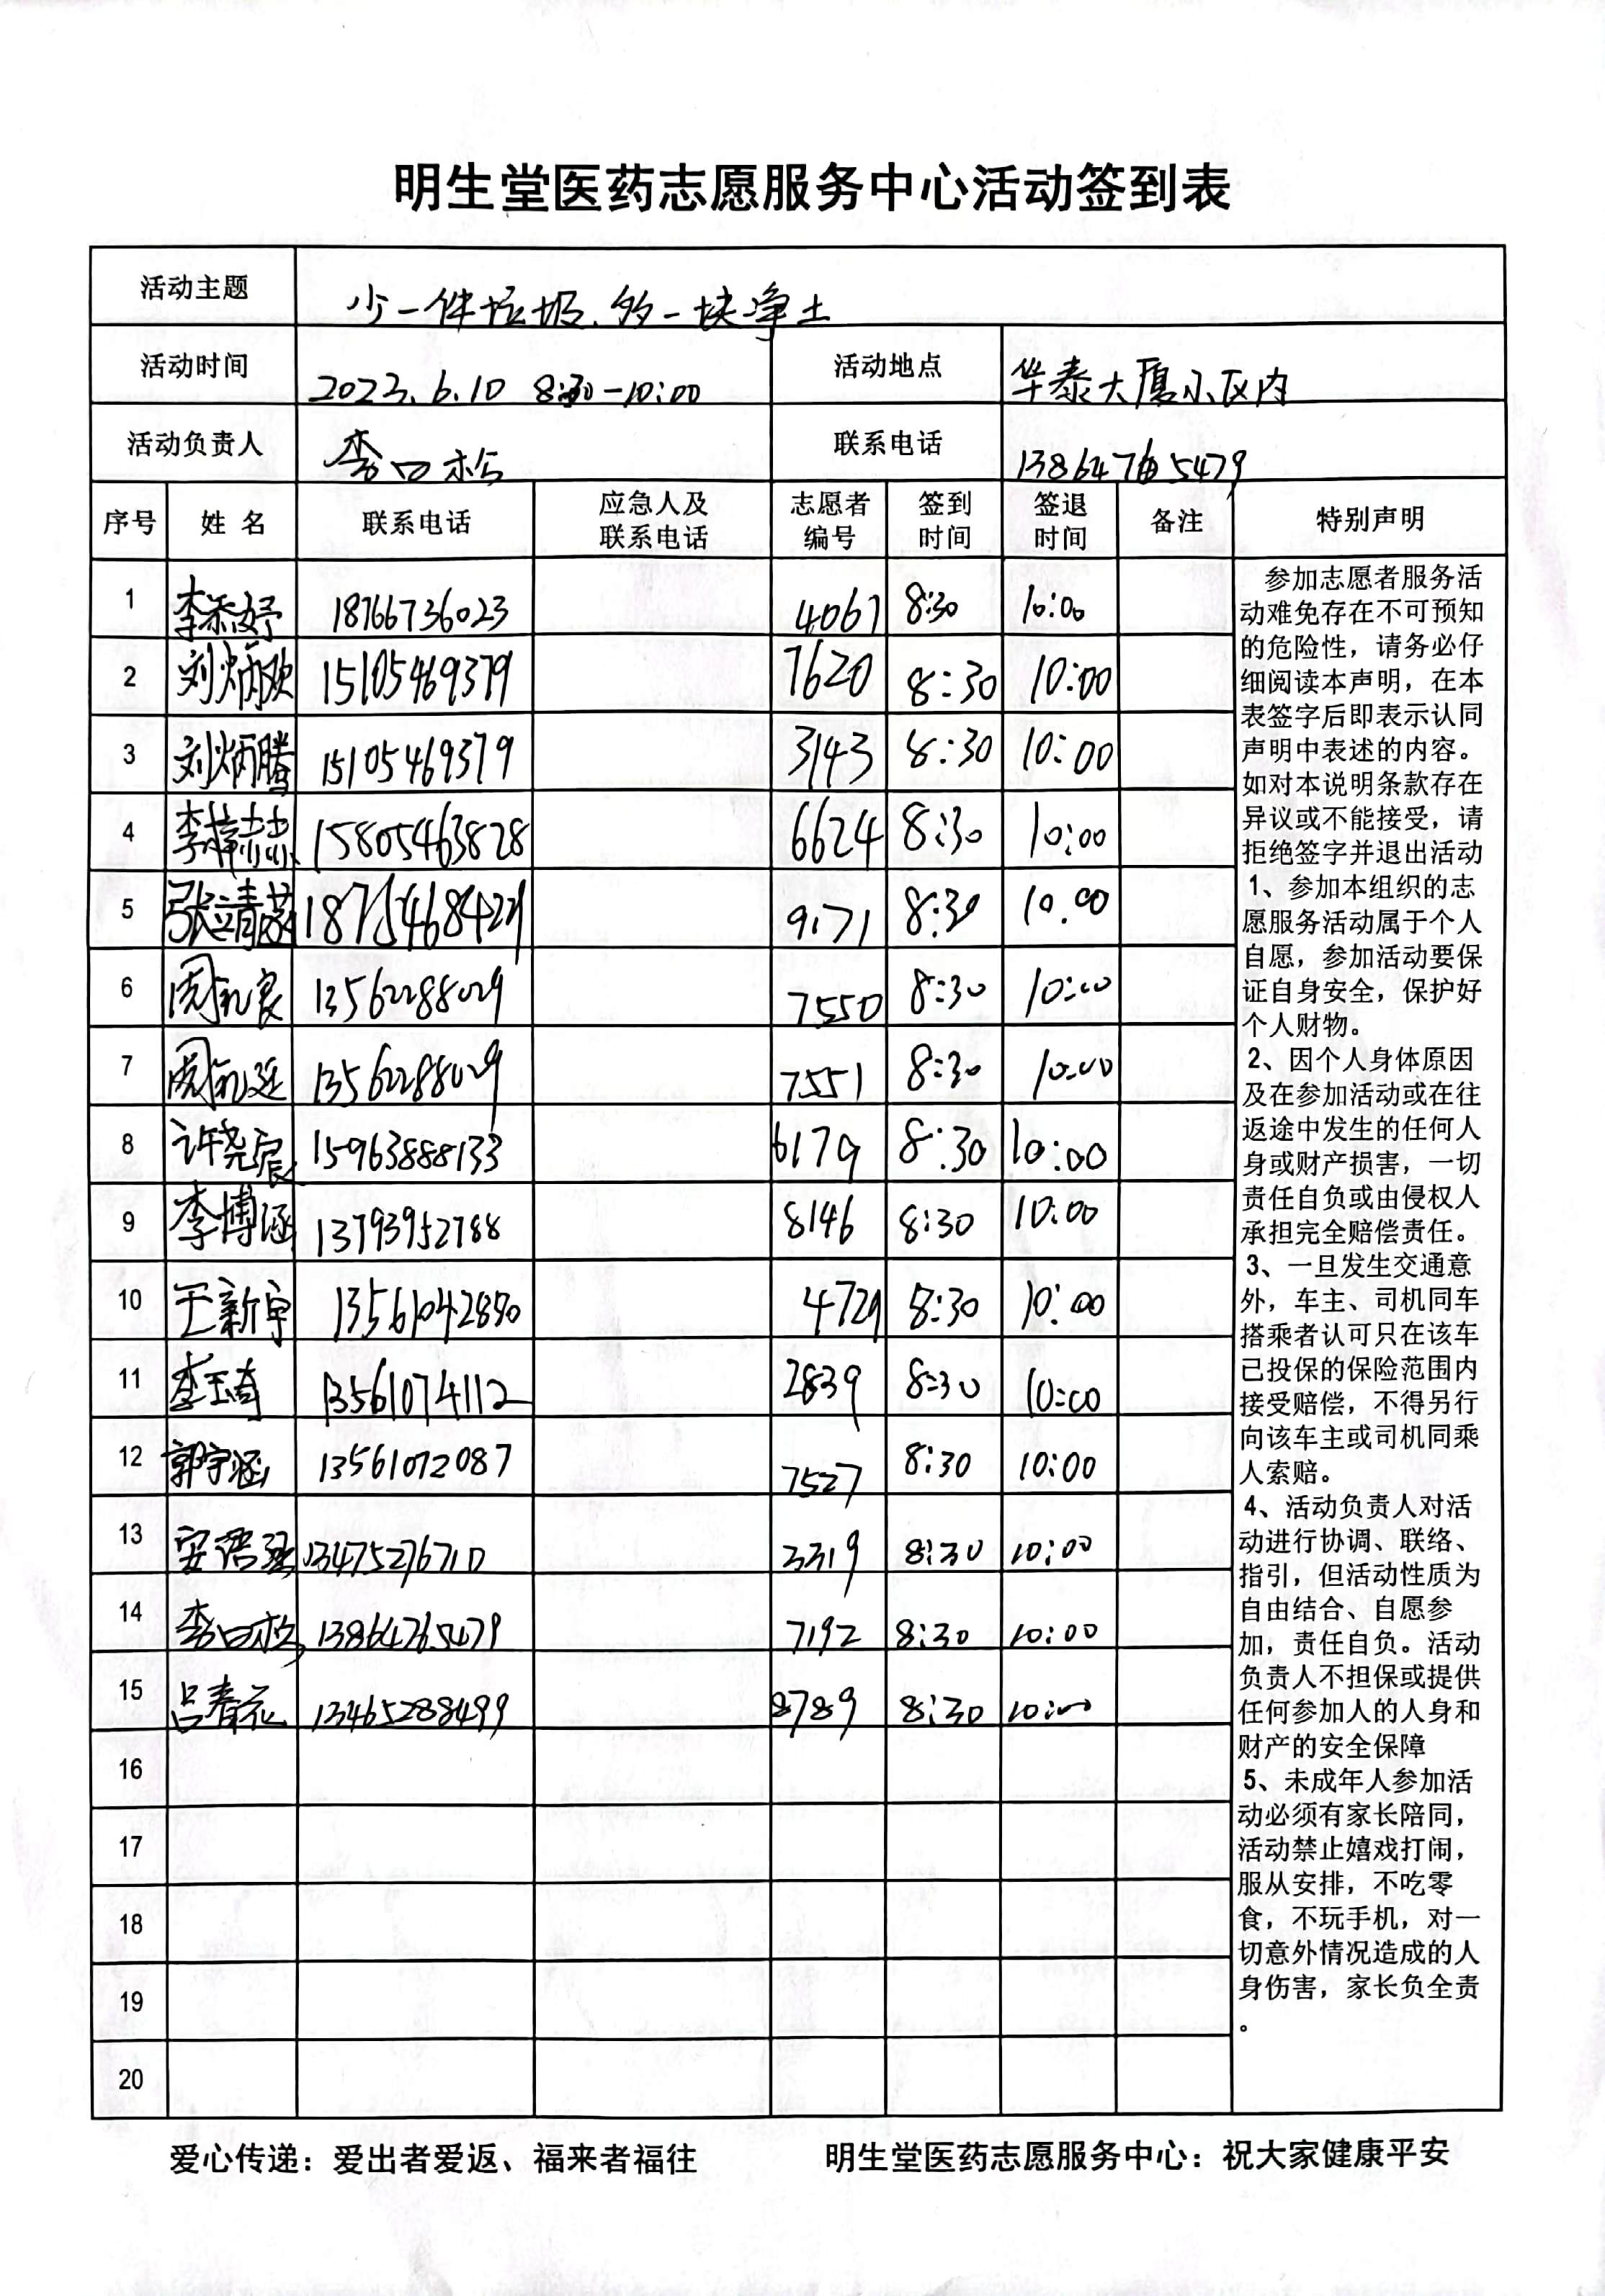 明生堂医药志愿服务中心活动签到表
活动主题 少一件垃圾、多一块净土
活动时间 2023.6.10 8:30-10:00 活动地点 华泰大厦小区内
活动负责人 李口松 联系电话 13864765479
序号 姓名 联系电话 应急人及联系电话 志愿者编号 签到时间 签退时间 备注 特别声明
1 李添妤 18766736023 4061 8:30 10:00
2 刘炳欣 15105469379 7620 8:30 10:00
3 刘炳腾 15105469379 3143 8:30 10:00
4 李梓 15805463828 6624 8:30 10:00
5 张靖 18754684221 9171 8:30 10.00
6 周礼良 13562288029 7550 8:30 10:00
7 周礼廷 13562288029 7551 8:30 10:00
8 许尧宸 15963888133 6179 8:30 10:00
9 李博涵 13793952788 8146 8:30 10:00
10 王新宇 13561042890 4729 8:30 10:00
11 李玉琦 13561074112 2839 8:30 10:00
12 郭宇涵 13561072087 7527 8:30 10:00
13 安语 13475276710 3319 8:30 10:00
14 李口松 13864765479 7192 8:30 10:00
15 吕春花 13465288499 8789 8:30 10:00
16
17
18
19
20
参加志愿者服务活
动难免存在不可预知
的危险性，请务必仔
细阅读本声明，在本
表签字后即表示认同
声明中表述的内容。
如对本说明条款存在
异议或不能接受，请
拒绝签字并退出活动
1、参加本组织的志
愿服务活动属于个人
自愿，参加活动要保
证自身安全，保护好
个人财物。
2、因个人身体原因
及在参加活动或在往
返途中发生的任何人
身或财产损害，一切
责任自负或由侵权人
承担完全赔偿责任。
3、一旦发生交通意
外，车主、司机同车
搭乘者认可只在该车
已投保的保险范围内
接受赔偿，不得另行
向该车主或司机同乘
人索赔。
4、活动负责人对活
动进行协调、联络、
指引，但活动性质为
自由结合、自愿参
加，责任自负。活动
负责人不担保或提供
任何参加人的人身和
财产的安全保障
5、未成年人参加活
动必须有家长陪同，
活动禁止嬉戏打闹，
服从安排，不吃零
食，不玩手机，对一
切意外情况造成的人
身伤害，家长负全责
。
爱心传递：爱出者爱返、福来者福往 明生堂医药志愿服务中心：祝大家健康平安